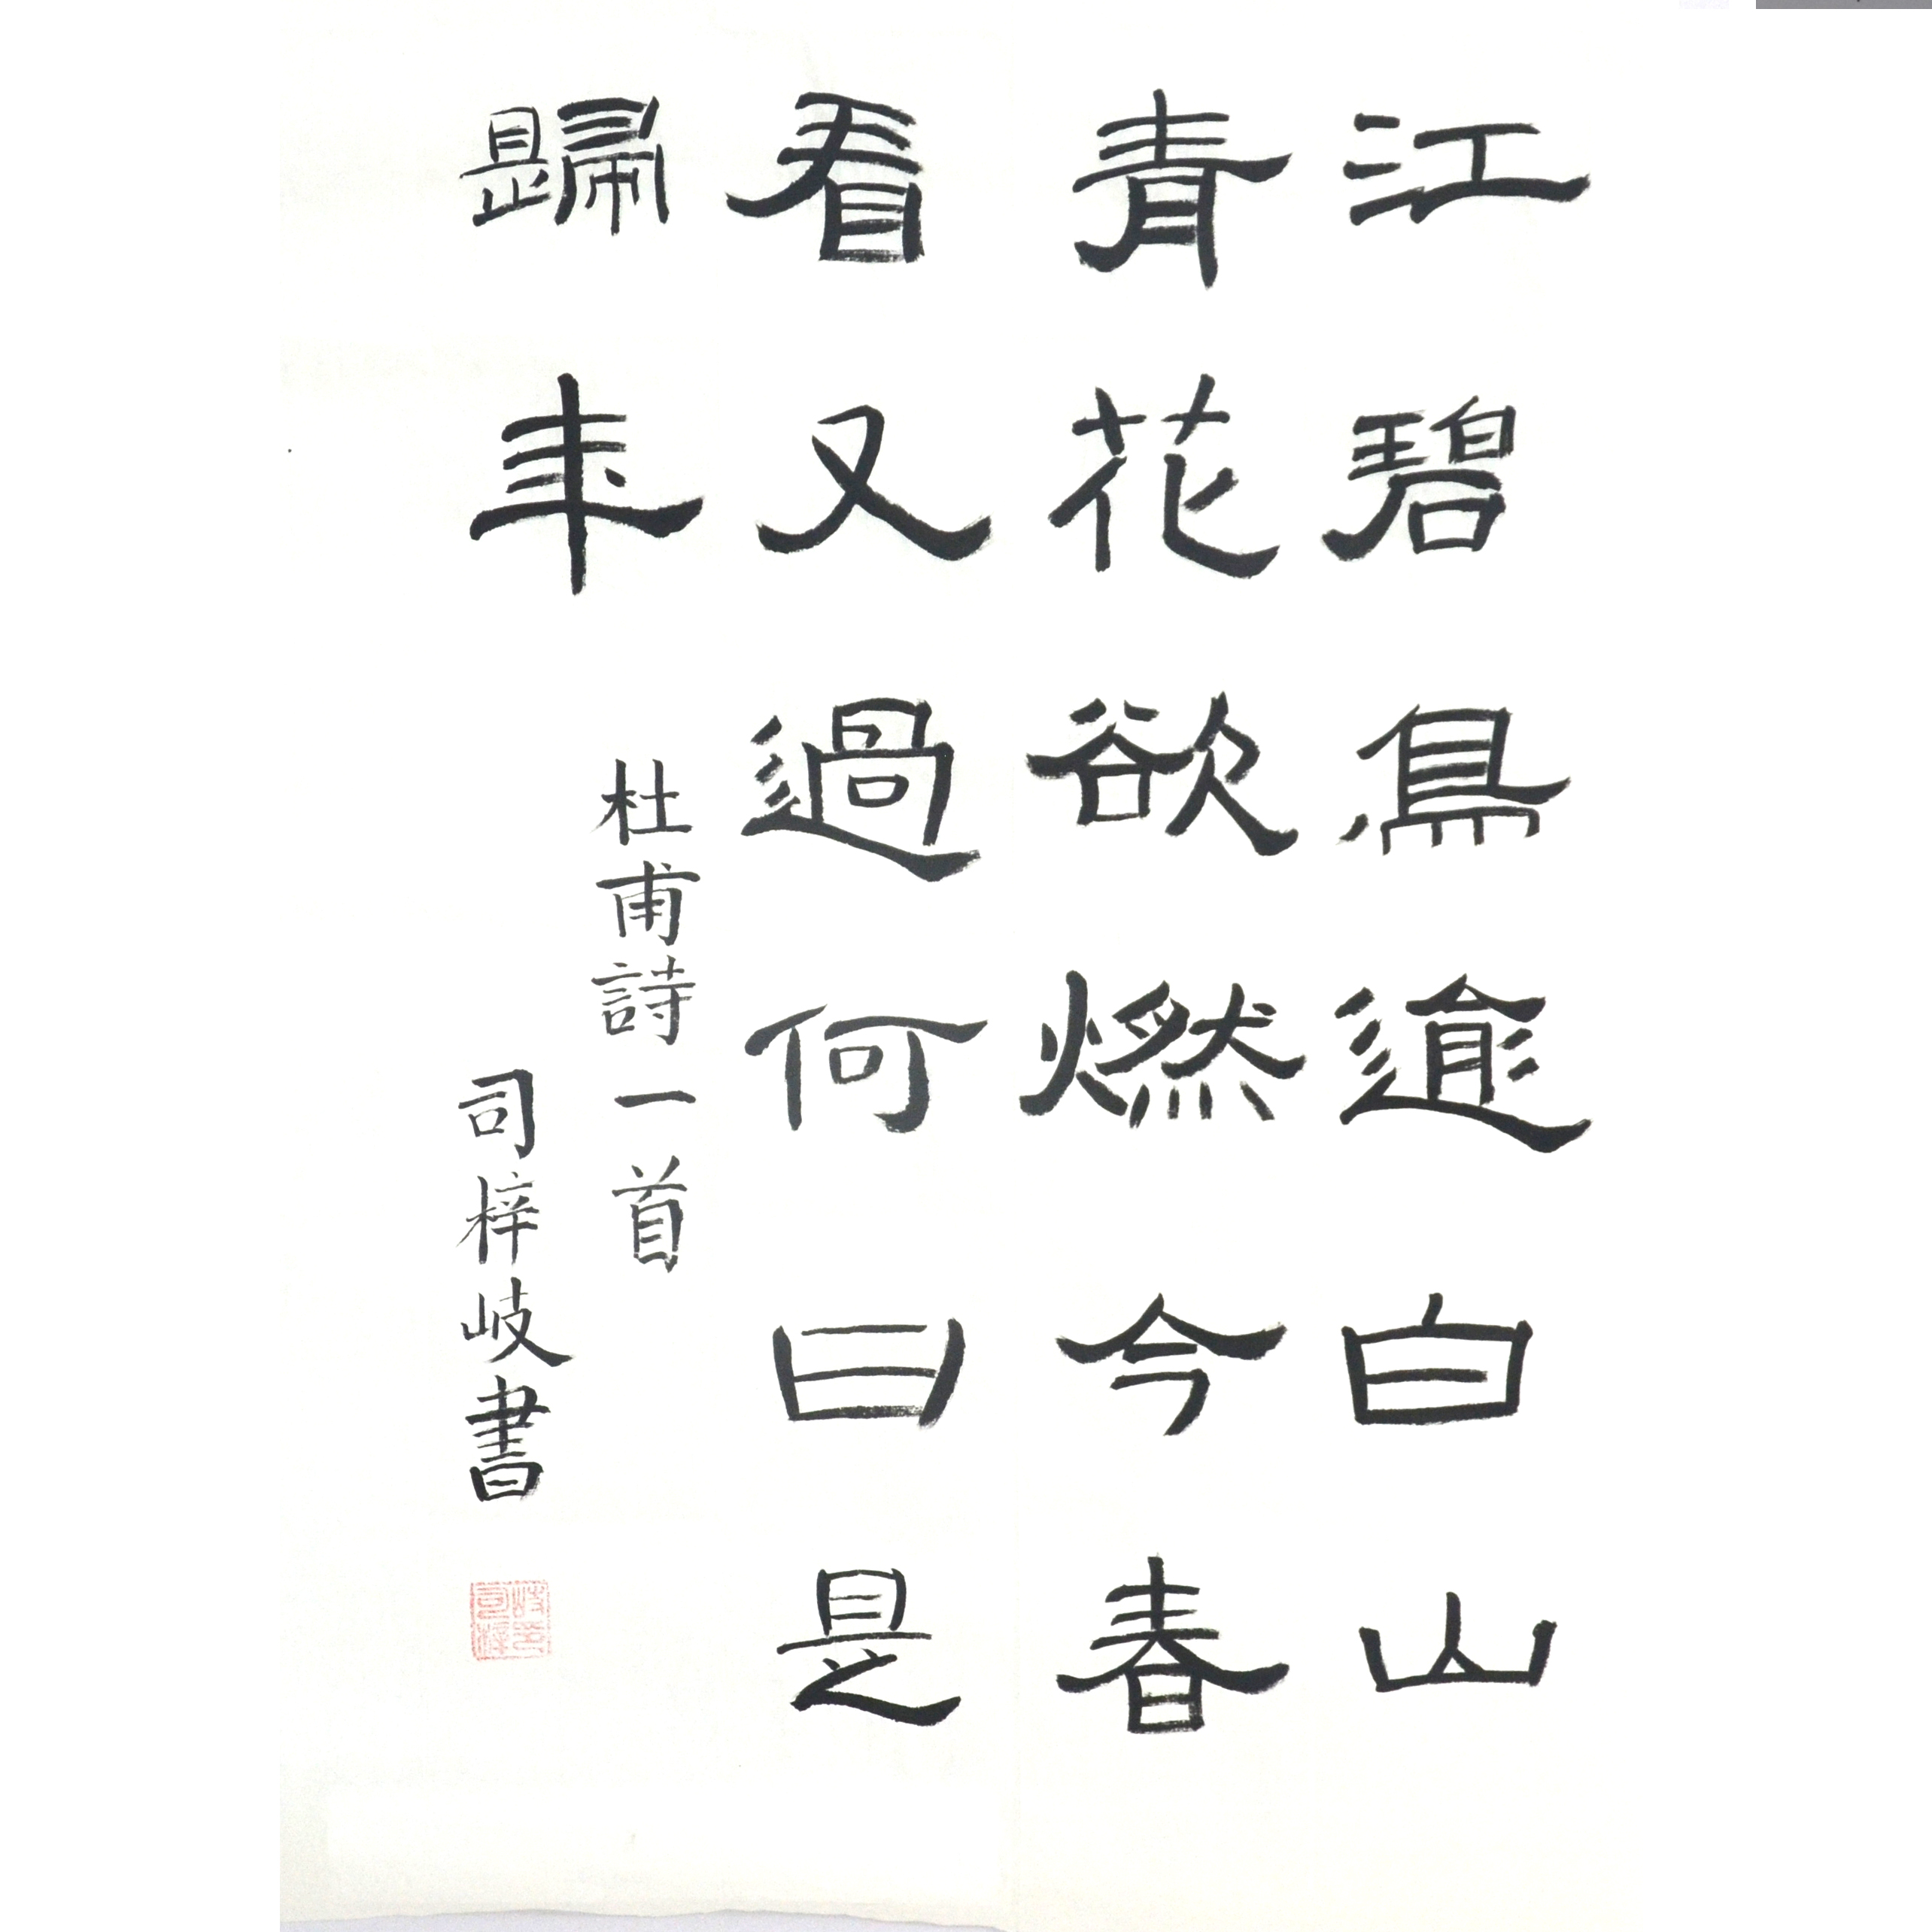 江碧鳥逾白山
青花欲燃今春
看又過何日是
歸年
杜甫詩一首
司梓岐書